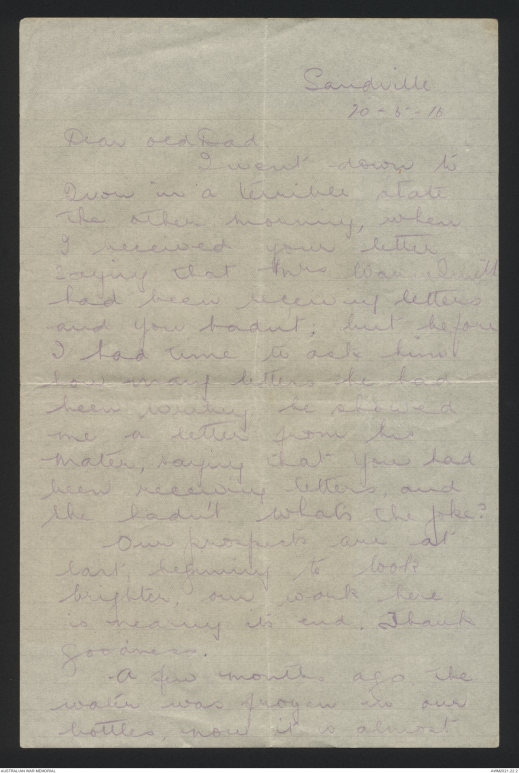 Sandville
20-5-16
Dear old Dad
I went down to
in a terrible state
the other morning, when
I received your letter
saying that Mrs
had been receiving letters
and you hadn't; but before
I had time to ask him
how many letters he had
been writing he showed
me a letter from his
Mater, saying that you had
been receiving letters, and
she hadn't whats the joke?
Our prospects are at
last beginning to look
brighter, our work here
is nearing its end. Thank
goodness.
A few months ago the
water was frozen in our
bottles, now it is almost
AUSTRALIAN WAR MEMORIAL